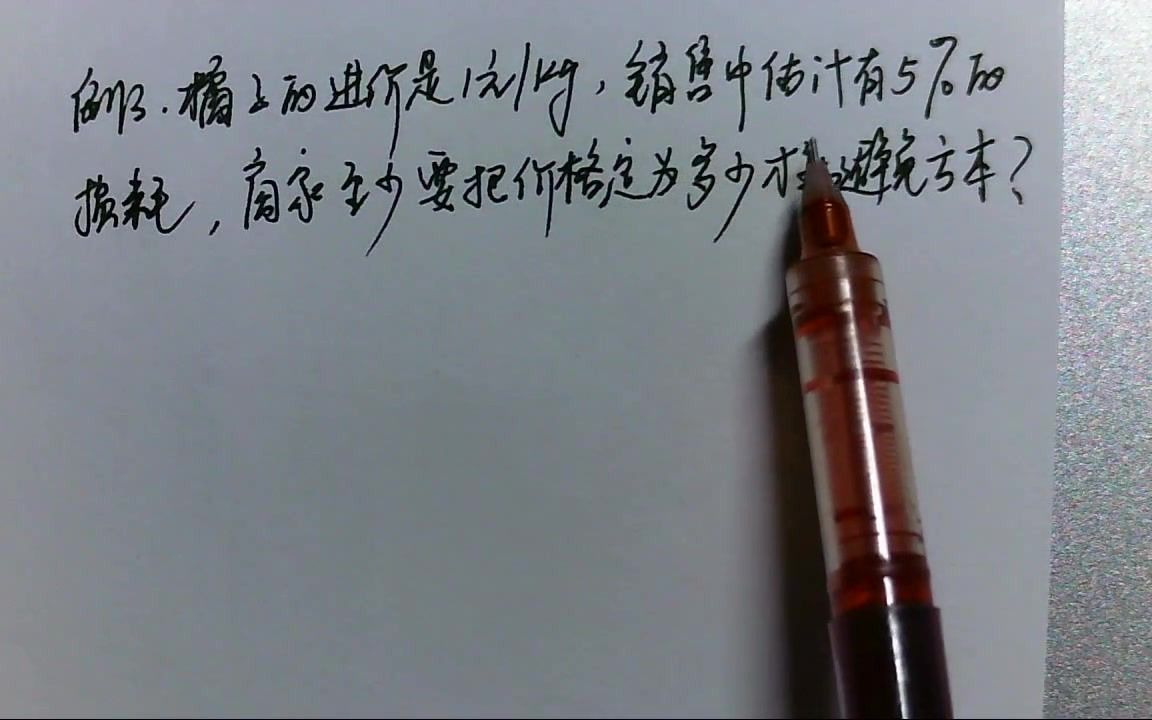 例3.橘子的进价是1元/kg,销售中估计有5%的
损耗,商家至少要把价格定为多少才避免亏本?